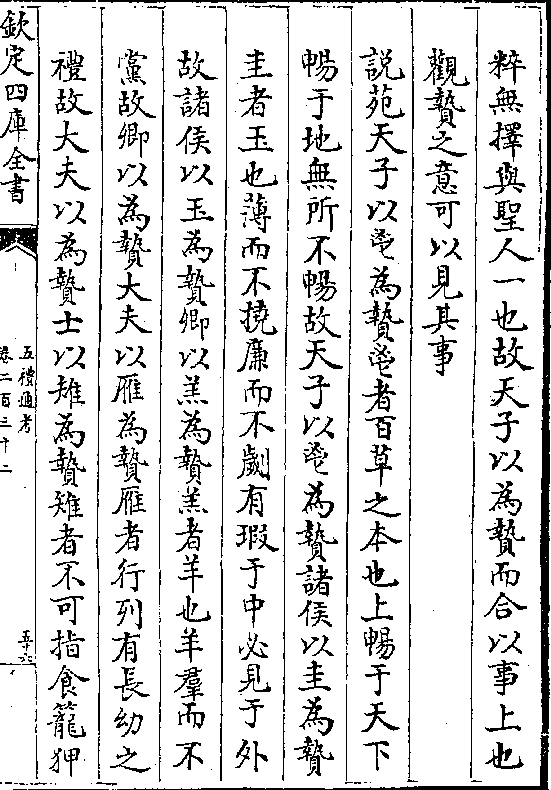 粹無擇與聖人一也故天子以為贄而合以事上也
觀贄之意可以見其事
説苑天子以鬯為贄鬯者百草之本也上暢于天下
暢于地無所不暢故天子以鬯為贄諸侯以圭為贄
圭者玉也薄而不撓亷而不劌有瑕于中必見于外
故諸侯以玉為贄卿以羔為贄羔者羊也羊羣而不
黨故卿以為贄大夫以雁為贄雁者行列有長幼之
禮故大夫以為贄士以雉為贄雉者不可指食籠狎
欽定四庫全書
五禮通考
卷二百二十二
五十六